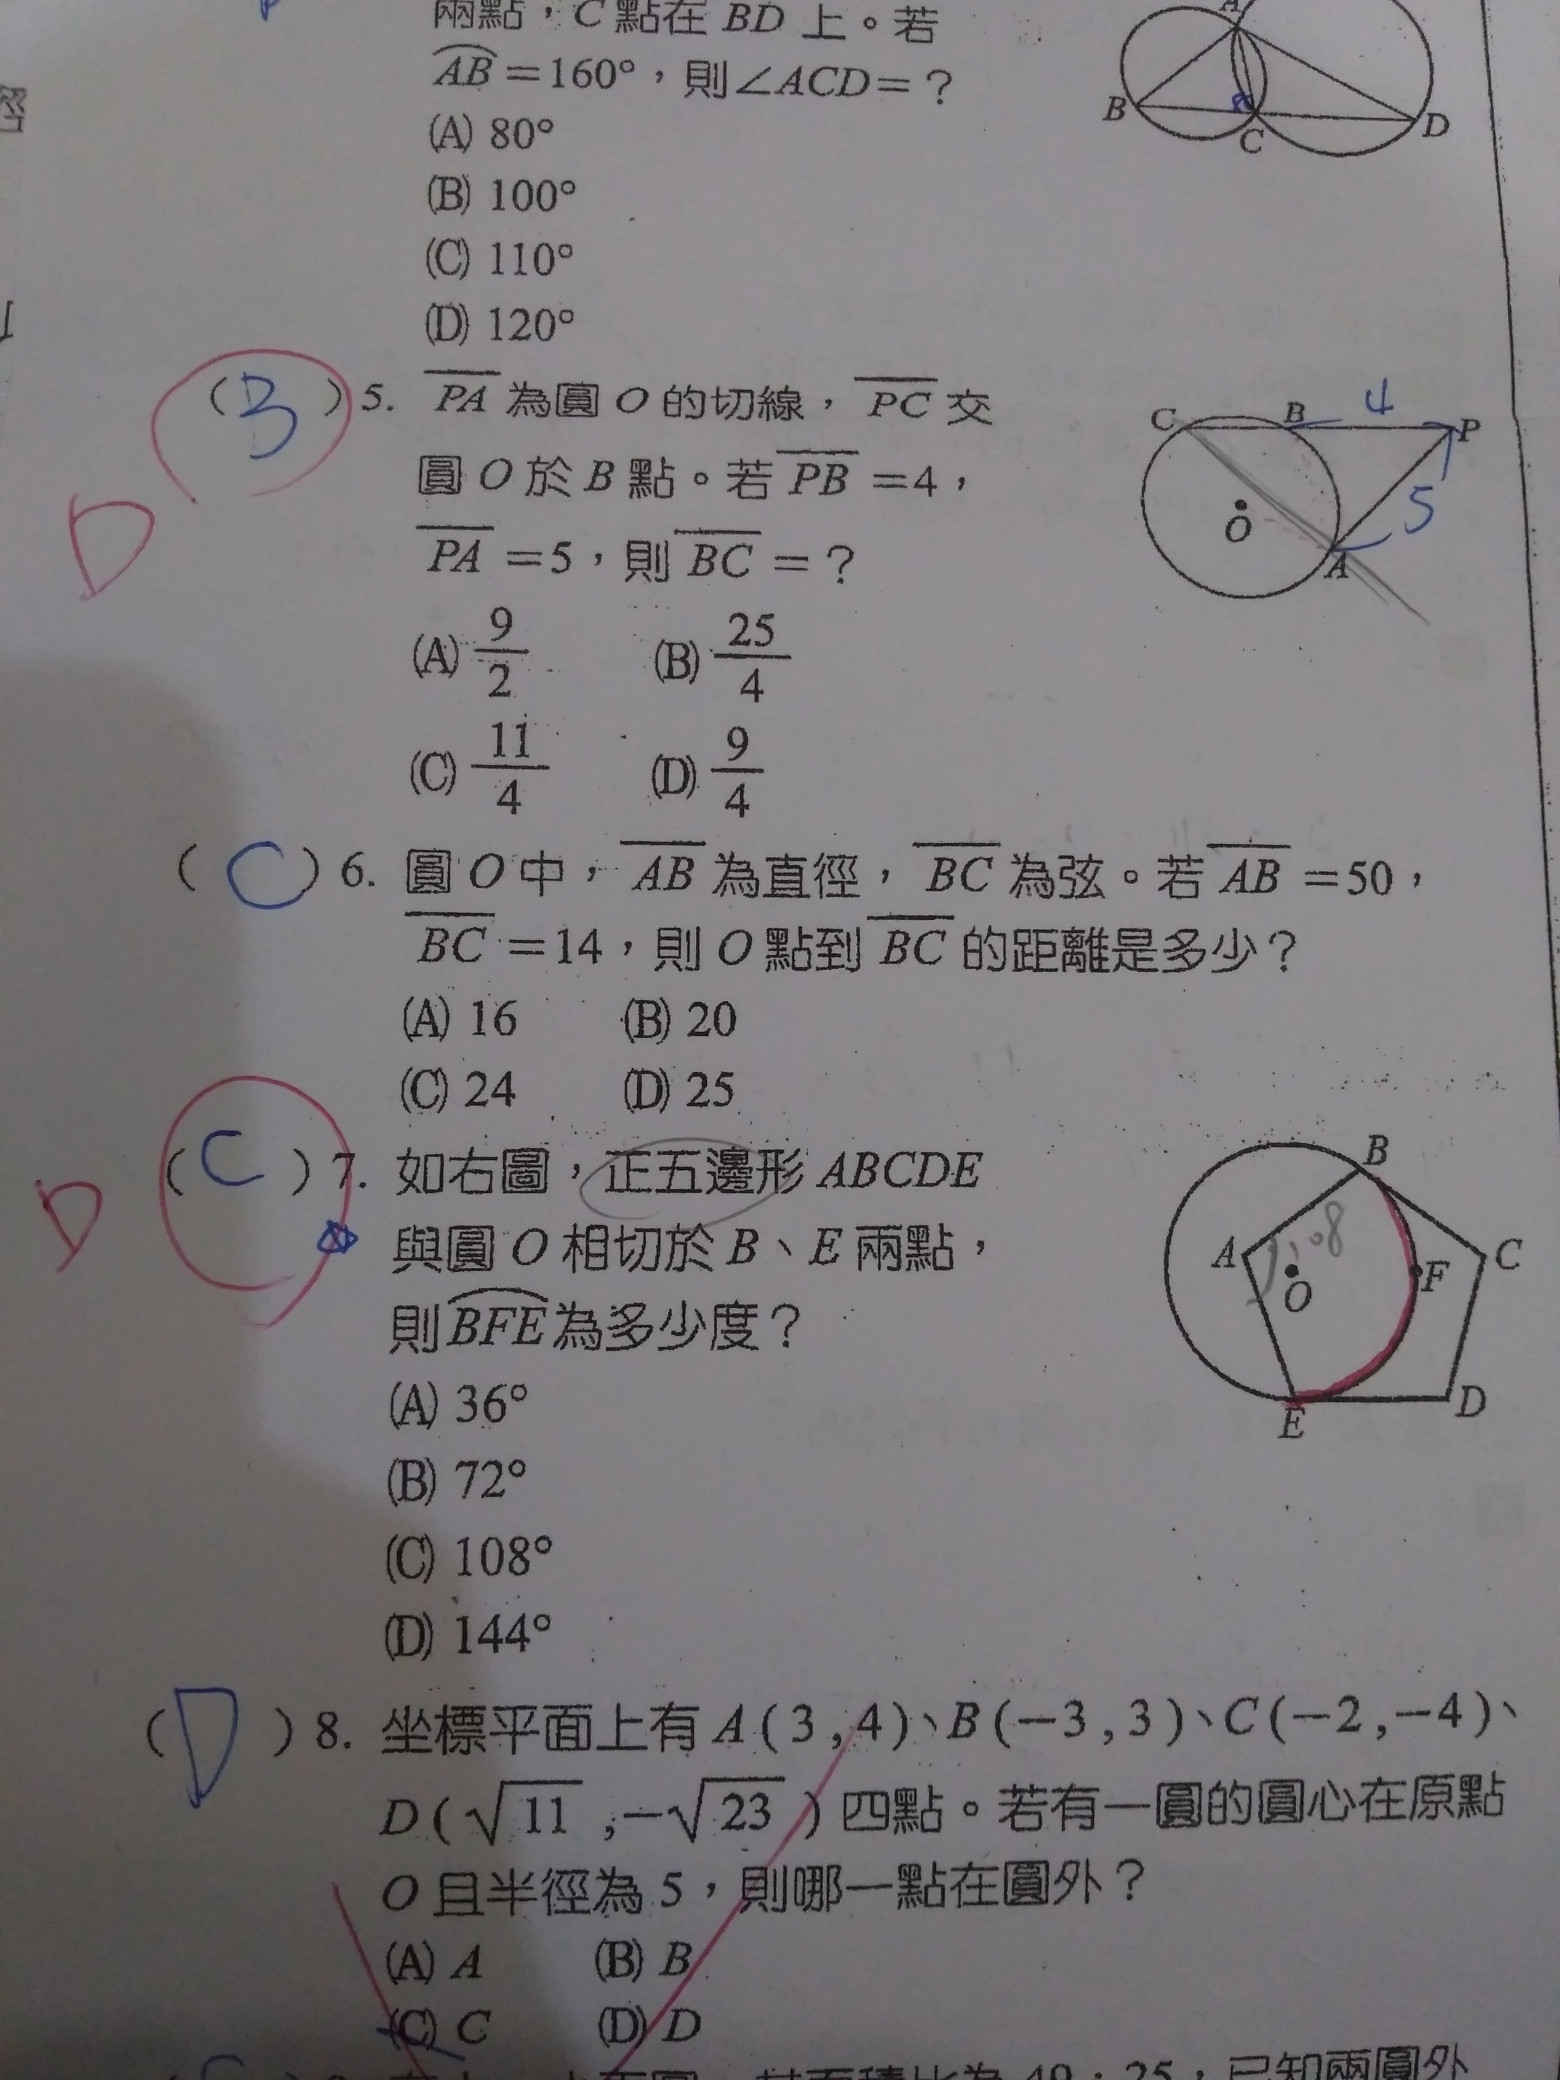 兩點，C 點在 BD 上。若
AB=160°，則∠ACD=？
(A) 80°
(B) 100°
(C) 110°
(D) 120°
A
B
C
D
(B) 5. PA 為圓 O 的切線，PC 交
圓 O 於 B 點。若 PB =4，
PA =5，則 BC =？
(A) 9/2 (B) 25/4
(C) 11/4 (D) 9/4
D
C B 4 P
5
O
A
(C) 6. 圓 O 中，AB 為直徑，BC 為弦。若 AB =50，
BC =14，則 O 點到 BC 的距離是多少？
(A) 16 (B) 20
(C) 24 (D) 25
(C) 7. 如右圖，正五邊形 ABCDE
與圓 O 相切於 B、E 兩點，
則 BFE 為多少度？
(A) 36°
(B) 72°
(C) 108°
(D) 144°
D
B
A 108 C
O F
E D
(D) 8. 坐標平面上有 A(3,4)、B(−3,3)、C(−2,−4)、
D(√11,−√23) 四點。若有一圓的圓心在原點
O 且半徑為 5，則哪一點在圓外？
(A) A (B) B
(C) C (D) D
49：25，已知兩圓外